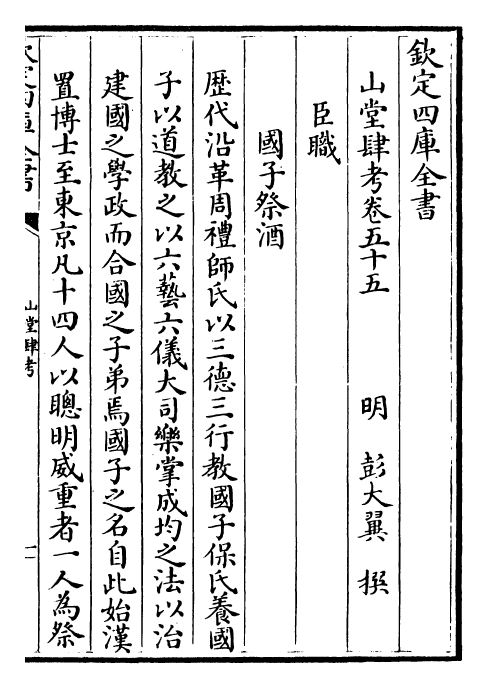 欽定四庫全書
山堂肆考卷五十五
明 彭大翼 撰
臣職
國子祭酒
歷代沿革周禮師氏以三德三行教國子保氏養國
子以道教之以六藝六儀大司樂掌成均之法以治
建國之學政而合國之子弟焉國子之名自此始漢
置博士至東京凡十四人以聰明威重者一人為祭
欽定四庫全書
山堂肆考
一